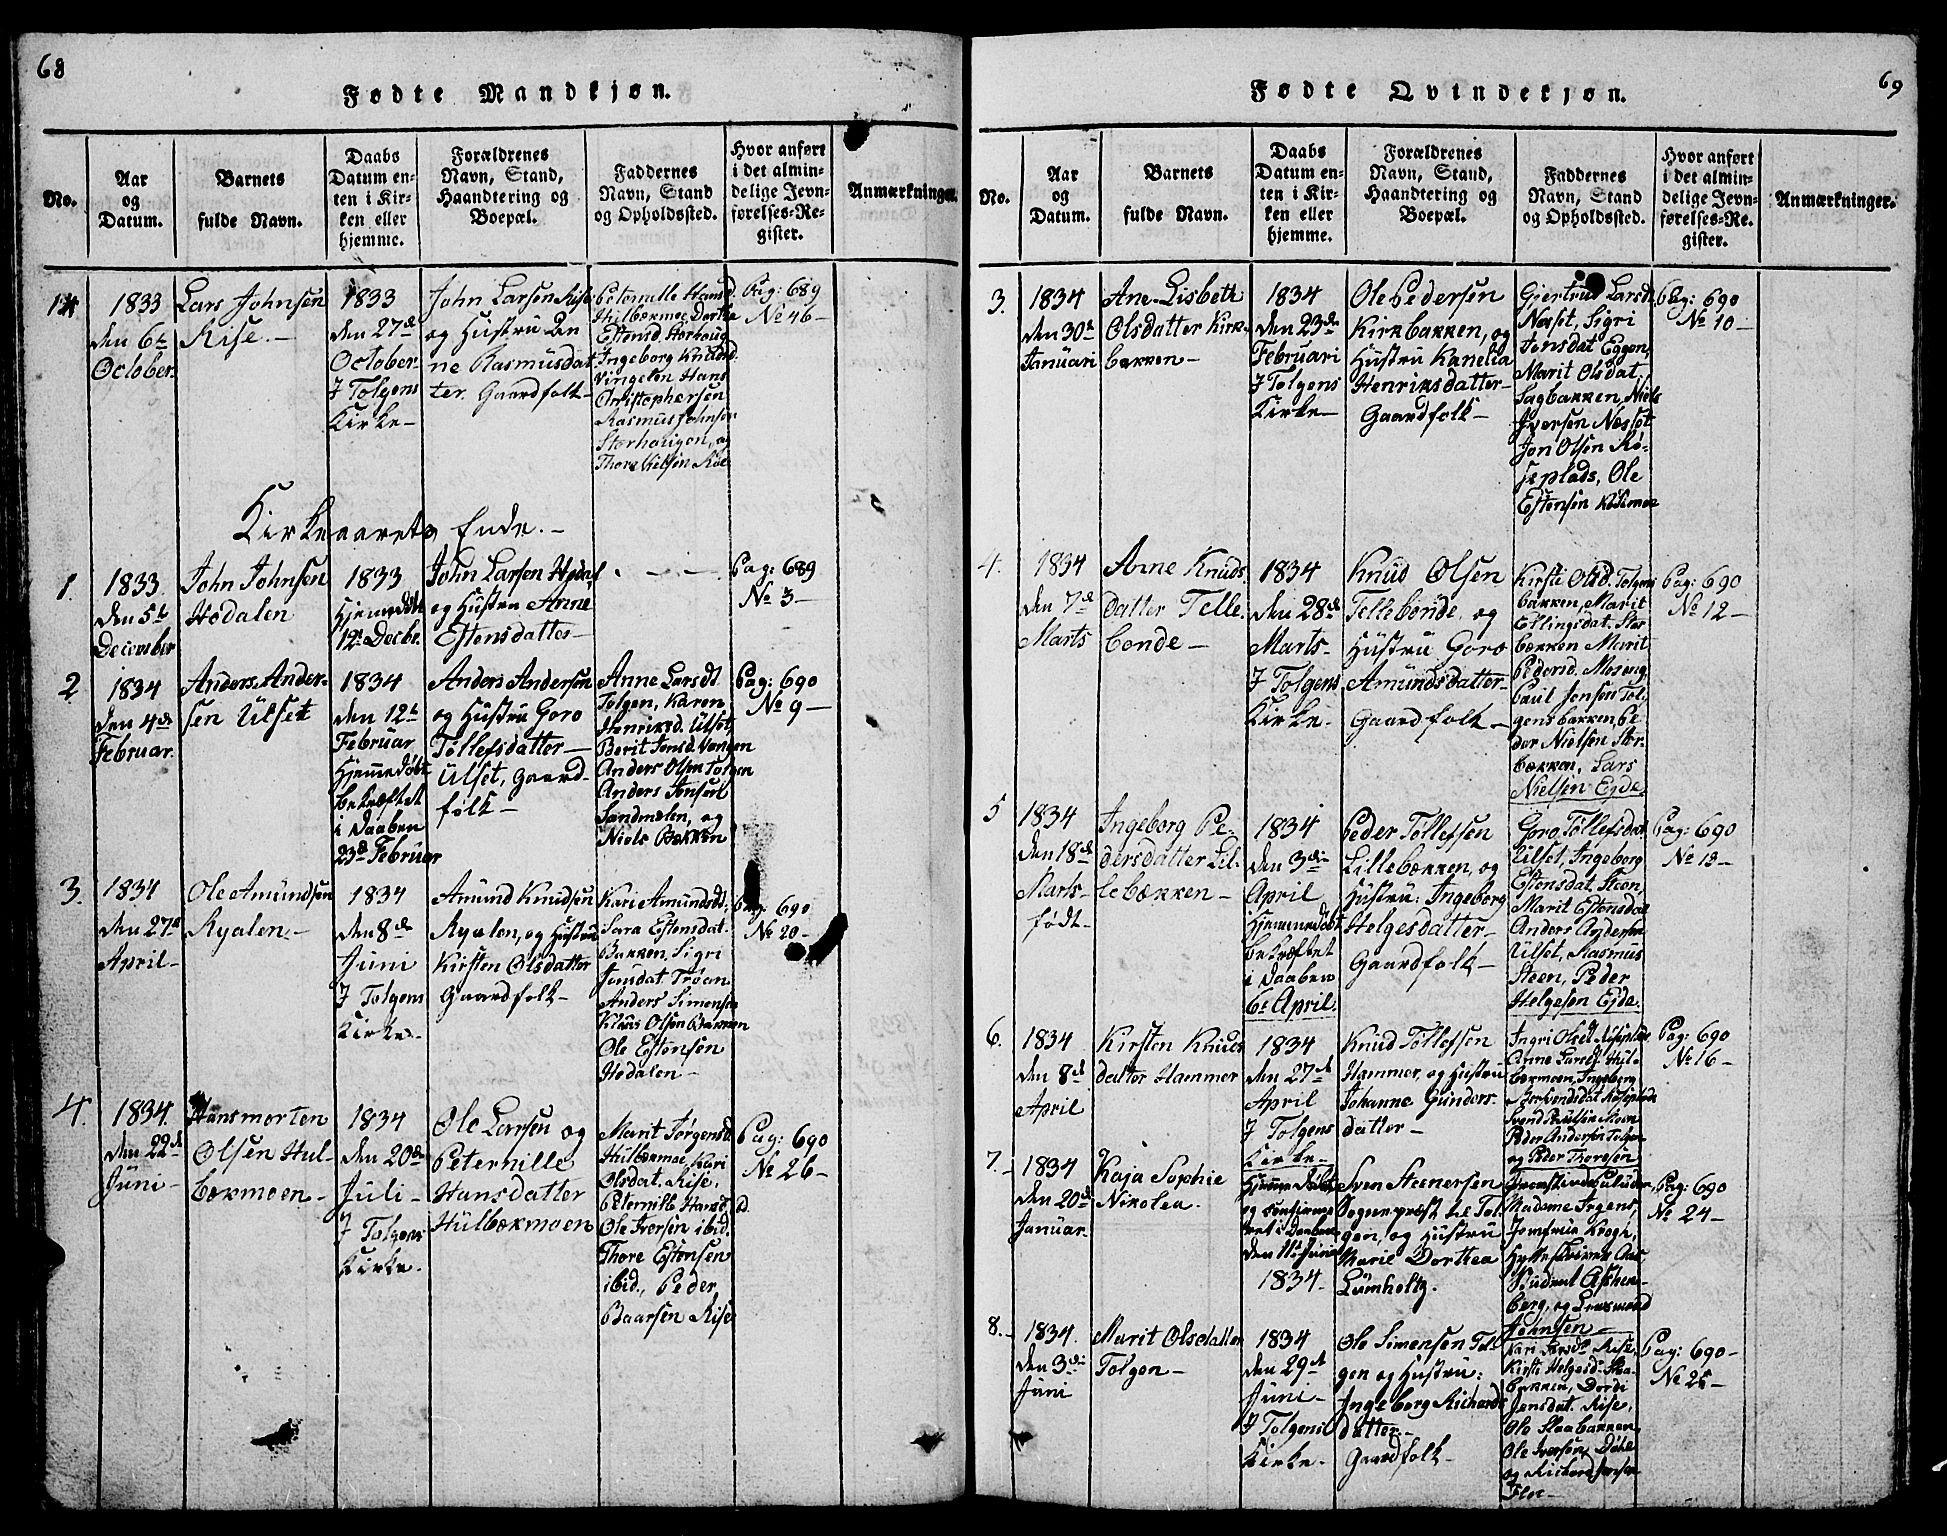 68
Fødte Mandkjøn.
No.
Aar
og
Datum.
Barnets
fulde Navn.
Daabs
Datum en-
ten i Kir-
ken eller
hjemme.
Forældrenes
Navn, Stand,
Haandtering og
Boepæl.
Faddernes
Navn, Stand
og Opholdssted.
Hvor anført
i det almin-
delige Jevn-
førelses-Re-
gister.
Anmærkninger.
1833
den 6te
October
Lars Johnsen
Rise.-
1833
den 27de
October-
I Tolgens
Kirke-
John Larsen Rise
og Hustru An
ne Rasmusdat
ter. Gaardfolk-
Peternille Hansd.
Hulbækmoe Dorthe
Estensd. Storhaug
Ingeborg Knudsd.
Vingelen Hans
Christophersen
Rasmus Johnsen
Storhaugen, og
Thore Nielsen
Pag: 689
No 46-
Kirkeaarets Ende.-
1.
1833
den 5te
December
John Johnsen
Hodalen
1833
Hjemmedøbt
12te Decbr.
John Larsen Hodal
og Hustru Anne
Estensdatter-
Pag: 689
No 3-
2
1834
den 4de
Februar.
Anders Ander-
sen Ulset
1834
den 12te
Februar
Hjemmedøbt
bekræftet
i Daaben
23de Februar
Anders Andersen
og Hustru Goro
Tollefsdatter-
Ulset, Gaard-
folk-
Anne Larsdt
Tolgen, Karen
Henriksd. Ulset,
Berit Jonsd. Vangen
Anders Olsen Tolgen
Anders Jonsen
Sandmælen, og
Niels Bækken
Pag: 690
No 9-
3.
1834
den 27de
April-
Ole Amundsen
Ryalen-
1834
den 8de
Juni
I Tolgens
Kirke.
Amund Knudsen
Ryalen, og Hustru
Kirsten Olsdatter
Gaardfolk-
Kari Amundsdt,
Sara Estensdat.
Bakken, Sigri
Jonsdat Trøen
Anders Simensen
Klaus Olsen Bakken
Ole Estensen
Hodalen-
Pag: 690
No 20-
4.
1834.
den 22de
Juni-
Hansmorten
Olsen Hul-
bækmoen-
1834
den 20de
Juli-
I Tolgens
Kirke.
Ole Larsen og
Peternille
Hansdatter
Hulbækmoen
Marit Jørgensd.
Hulbækmoe, Kari
Olsdat. Rise,
Peternille Hansd.
Ole Iversen ibid.
Thore Estensen
ibid., Peder
Baarsen Rise
Pag: 690
No 26-
69
Fødte Qvindekjøn.
No.
Aar
og
Datum.
Barnets
fulde Navn.
Daabs
Datum en-
ten i Kir-
ken eller
hjemme.
Forældrenes
Navn, Stand,
Haandtering og
Boepæl.
Faddernes
Navn, Stand
og Opholdssted.
Hvor anført
i det almin-
delige Jevn-
førelses-Re-
gister.
Anmærkninger.
3.
1834
den 30te
Januari
Ane-Lisbeth
Olsdatter Kirk-
bakken-
1834
den 23de
Februari
I Tolgens
Kirke-
Ole Pedersen
Kirkbakken, og
Hustru Kanelia
Henriksdatter-
Gaardfolk-
Gjertrud Larsdt
Næset, Sigri
Jonsdat Eggen,
Marit Olsdat.
Sagbakken, Niels
Iversen Næsset
Jon Olsen Rø-
seplads, Ole
Estensen
Pag: 690
No 10-
4.
1834
den 7de
Marts
Anne Knuds
datter Telle
bonde-
1834
den 28de
Marts-
I Tolgens
Kirke-
Knud Olsen
Tellebonde, og
Hustru Goro
Amundsdatter-
Gaardfolk-
Kirsti Olsd. Tolgens
bakken, Marit
Ellingsdat. Stor
bækken Marit
Pedersd. Moseng
Paul Jonsen Tol-
gensbakken, Pe
der Nielsen Stor-
bækken, Lars
Nielsen Eide.
Pag: 690
No 12-
5
1834
den 18de
Marts-
født-
Ingeborg Pe-
dersdatter Lil-
lebækken-
1834
den 3die
April
Hjemmedøbt
bekræftet
i Daaben
6te April.
Peder Tollefsen
Lillebækken, og
Hustru: Ingeborg
Helgesdatter-
Gaardfolk-
Goro Tollefsdat
Ulset, Ingeborg
Estensdat. Steen,
Marit Estensdat
Anders Andersen
Ulset, Rasmus
Steen, Peder
Helgesen Eide.
Pag: 690
No 13-
6.
1834
den 8de
April
Kirsten Knuds
datter Hammer
1834
den 27de
April
I Tolgens
Kirke-
Knud Tollefsen
Hammer, og Hustru
Johanne Gunders-
datter-
Ingri Olsdt Røseplads
Anne Larsdt. Hul-
bækmoen, Ingeborg
Peder Andersen Tolgen
og Peder Thoresen
Pag: 690
No 16-
7.-
1834
den 20de
Januar
Kaja Sophie
Nikolea.
Hjemmedøbt
og
ret i Daaben
den 11te Juni
1834.
Sven Steenersen
Sogneprest til Tol-
gen, og Hustru
Marie Dorthea
Lumholtz.
Madame Irgens,
Jomfrue Krogh,
Student Aschen-
berg, og Lensmand
Johnsen-
Pag: 690
No 24-
8.-
1834.
den 3die
Juni
Marit Olsdatter
Tolgen-
1834
den 29de
Juni-
I Tolgens
Kirke-
Ole Simensen Tol-
gen og Hustru:
Ingeborg Richards
datter-
Gaardfolk-
Kari Larsdt Rise,
Kirsti Helgesd. Staa-
bakken, Dordi
Jonsdat. Rise,
Ole Staabakken,
Ole Iversen Døhl
og Richard Iversen
Floe-
Pag: 690-
No 25-